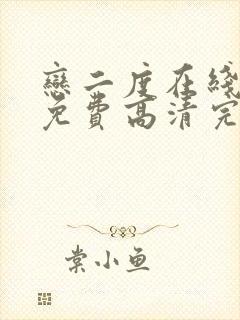 戀二度在綫
免费高清完
棠小鱼